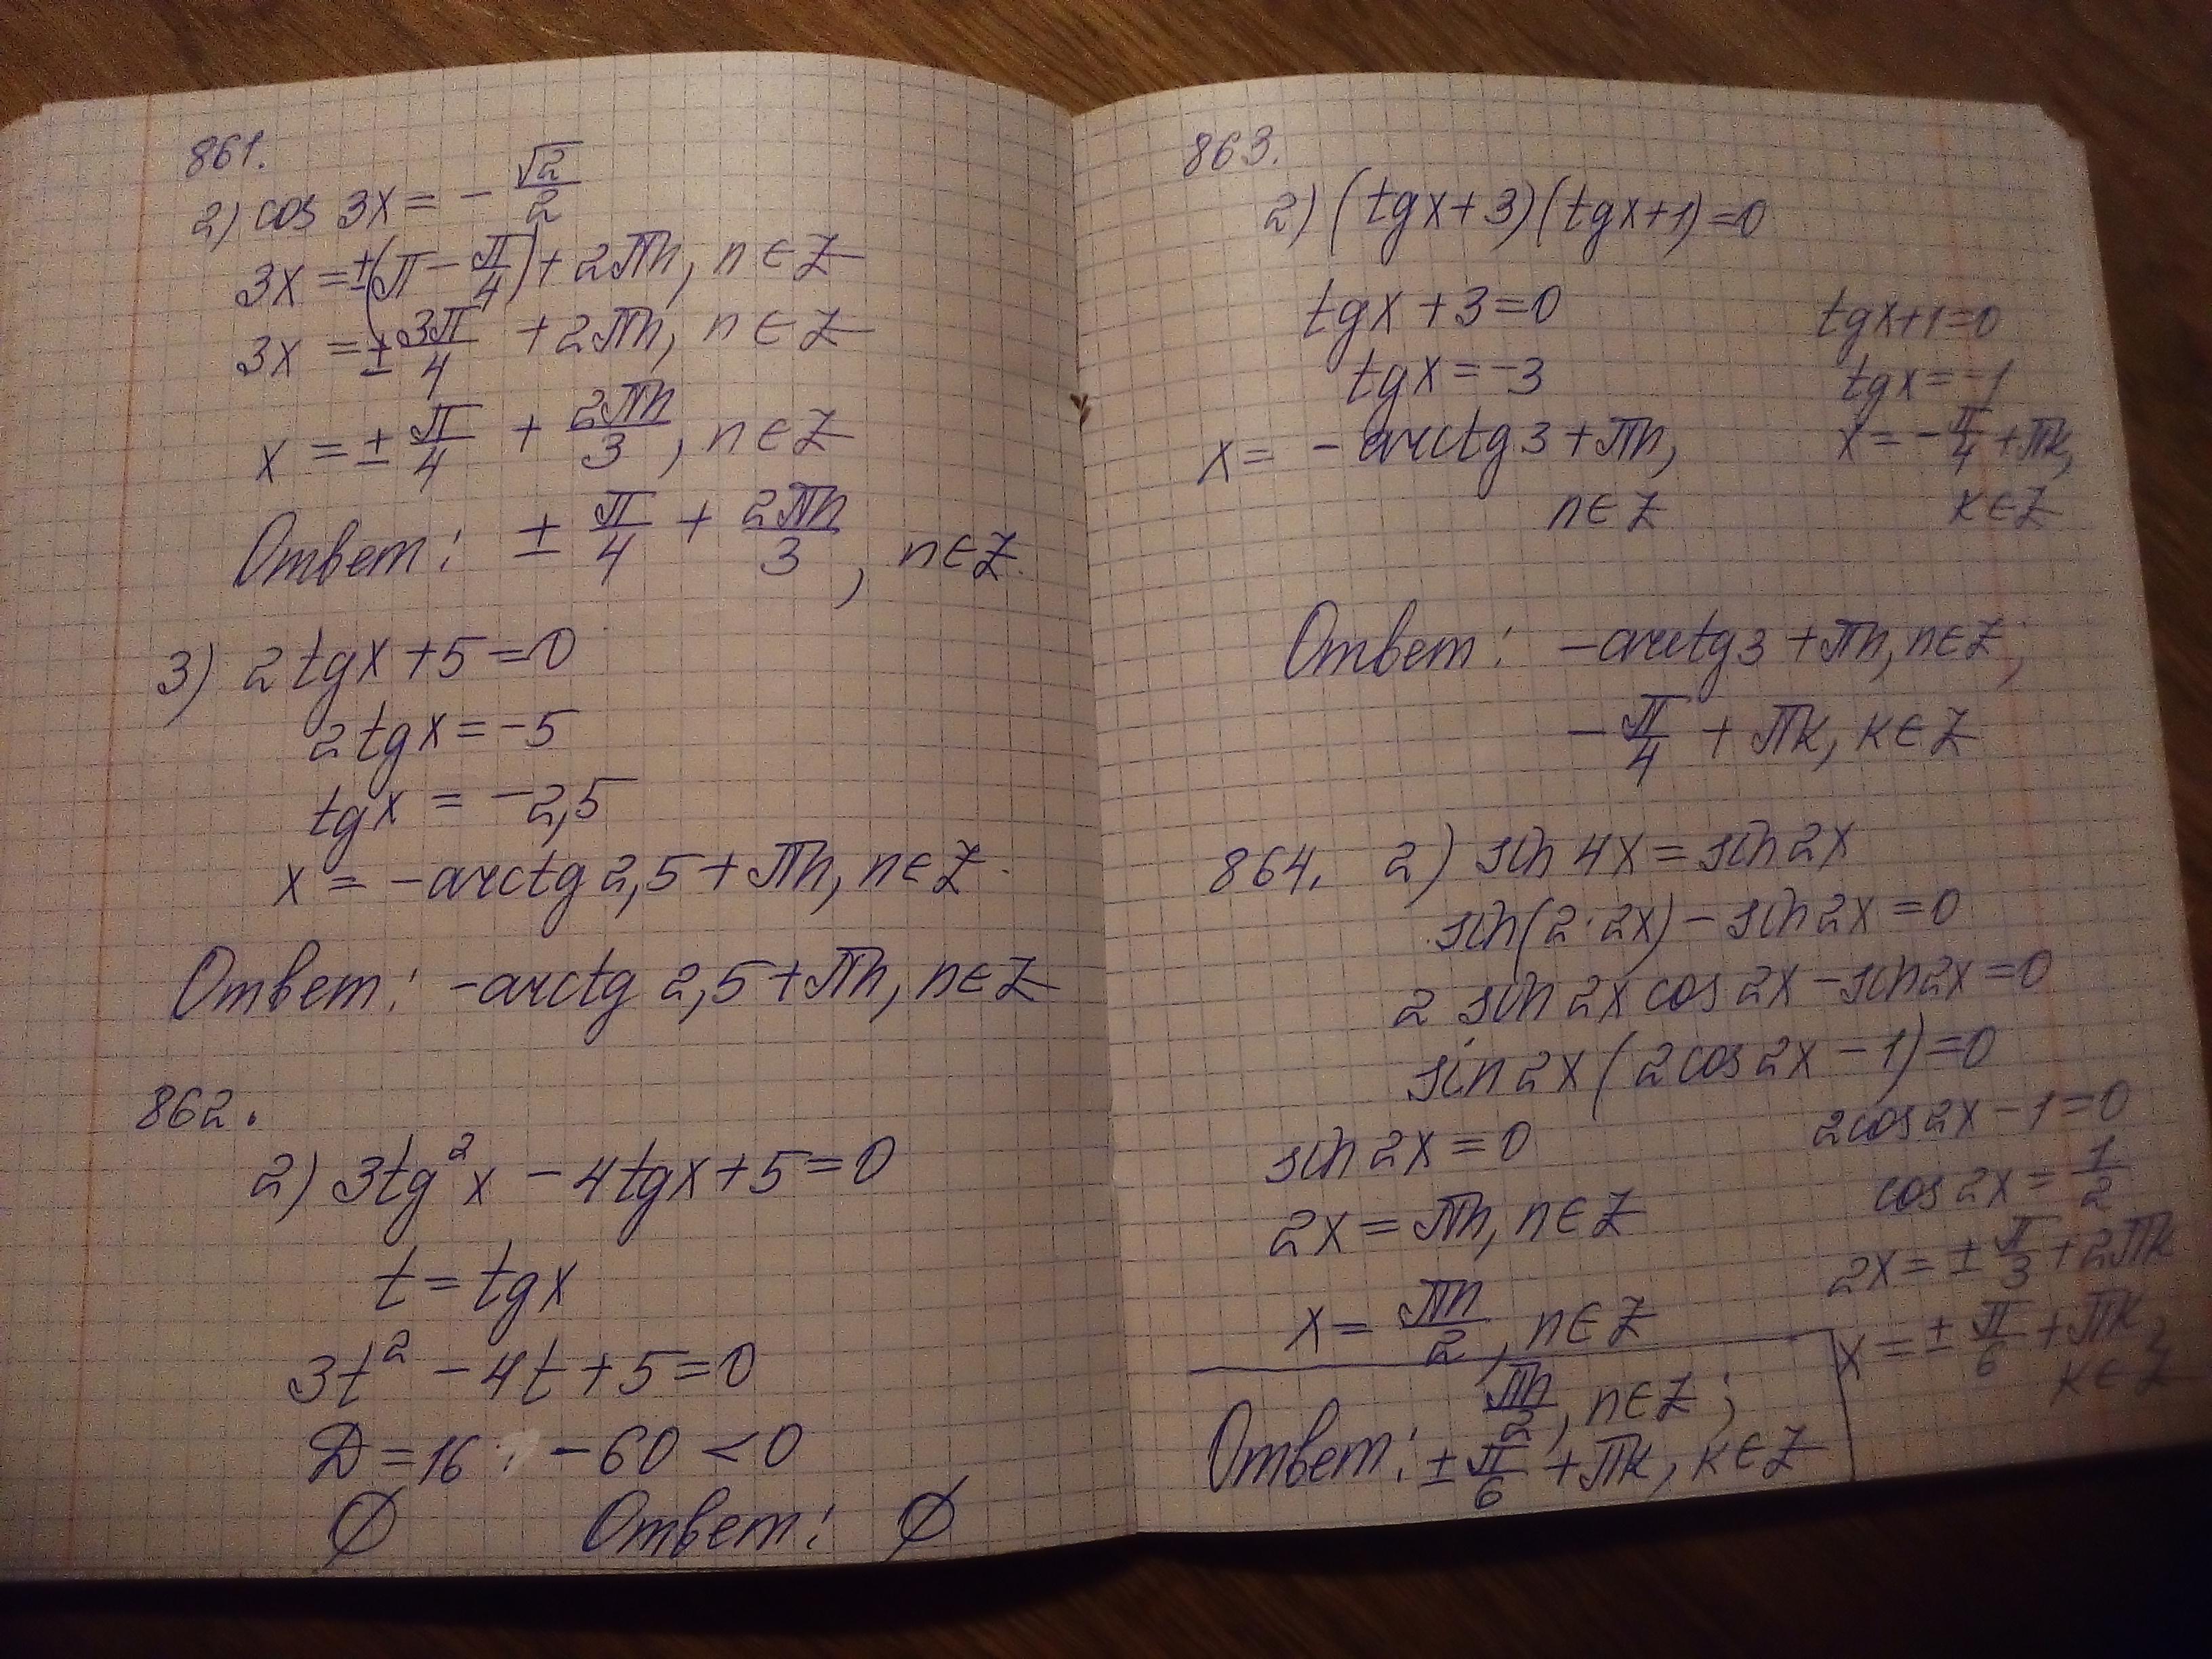 861.
2) cos 3x = - √2/2
3x = ±(π - π/4) + 2πn, n ∈ Z
3x = ± 3π/4 + 2πn, n ∈ Z
x = ± π/4 + 2πn/3, n ∈ Z
Ответ: ± π/4 + 2πn/3, n ∈ Z.
3) 2tgx + 5 = 0
2tgx = -5
tgx = -2,5
x = -arctg 2,5 + πn, n ∈ Z.
Ответ: -arctg 2,5 + πn, n ∈ Z
862.
2) 3tg²x - 4tgx + 5 = 0
t = tgx
3t² - 4t + 5 = 0
Д = 16 - 60 < 0
∅ Ответ: ∅
863.
2) (tgx + 3)(tgx + 1) = 0
tgx + 3 = 0 tgx + 1 = 0
tgx = -3 tgx = -1
x = - arctg 3 + πn, x = - π/4 + πk,
n ∈ Z k ∈ Z
Ответ: -arctg 3 + πn, n ∈ Z;
- π/4 + πk, k ∈ Z
864. 2) sin 4x = sin 2x
sin(2·2x) - sin 2x = 0
2 sin 2x cos 2x - sin 2x = 0
sin 2x (2cos 2x - 1) = 0
sin 2x = 0 2cos 2x - 1 = 0
cos 2x = 1/2
2x = πn, n ∈ Z 2x = ± π/3 + 2πk
x = πn/2, n ∈ Z x = ± π/6 + πk,
k ∈ Z
πn/2, n ∈ Z;
Ответ: ± π/6 + πk, k ∈ Z